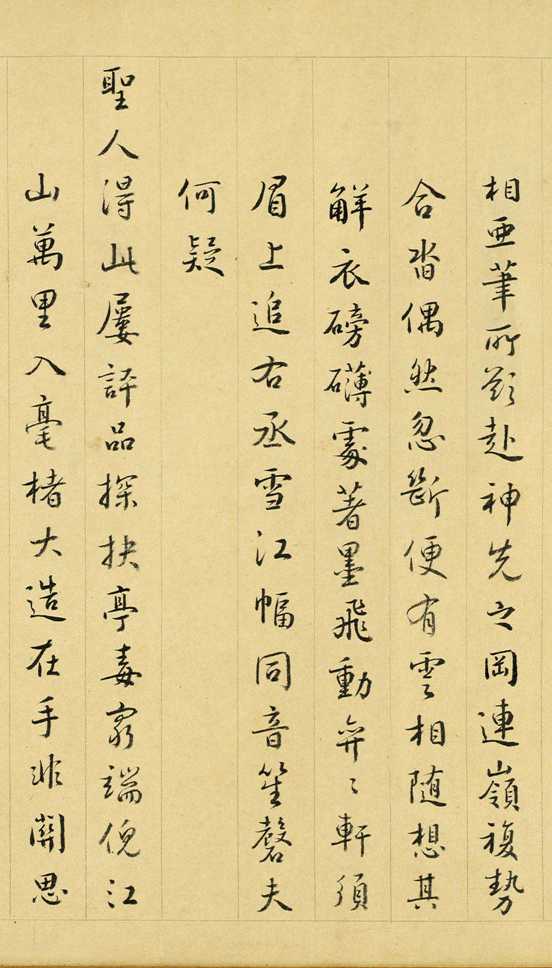 相亞筆所欲赴神先之岡連嶺複勢
合沓偶然忽斷便有雲相隨想其
解衣磅礴處著墨飛動奔〻軒須
眉上追右丞雪江幅同音笙磬夫
何疑
聖人得此屢評品探抉亭毒窮端倪江
山萬里入毫楮大造在手非關思